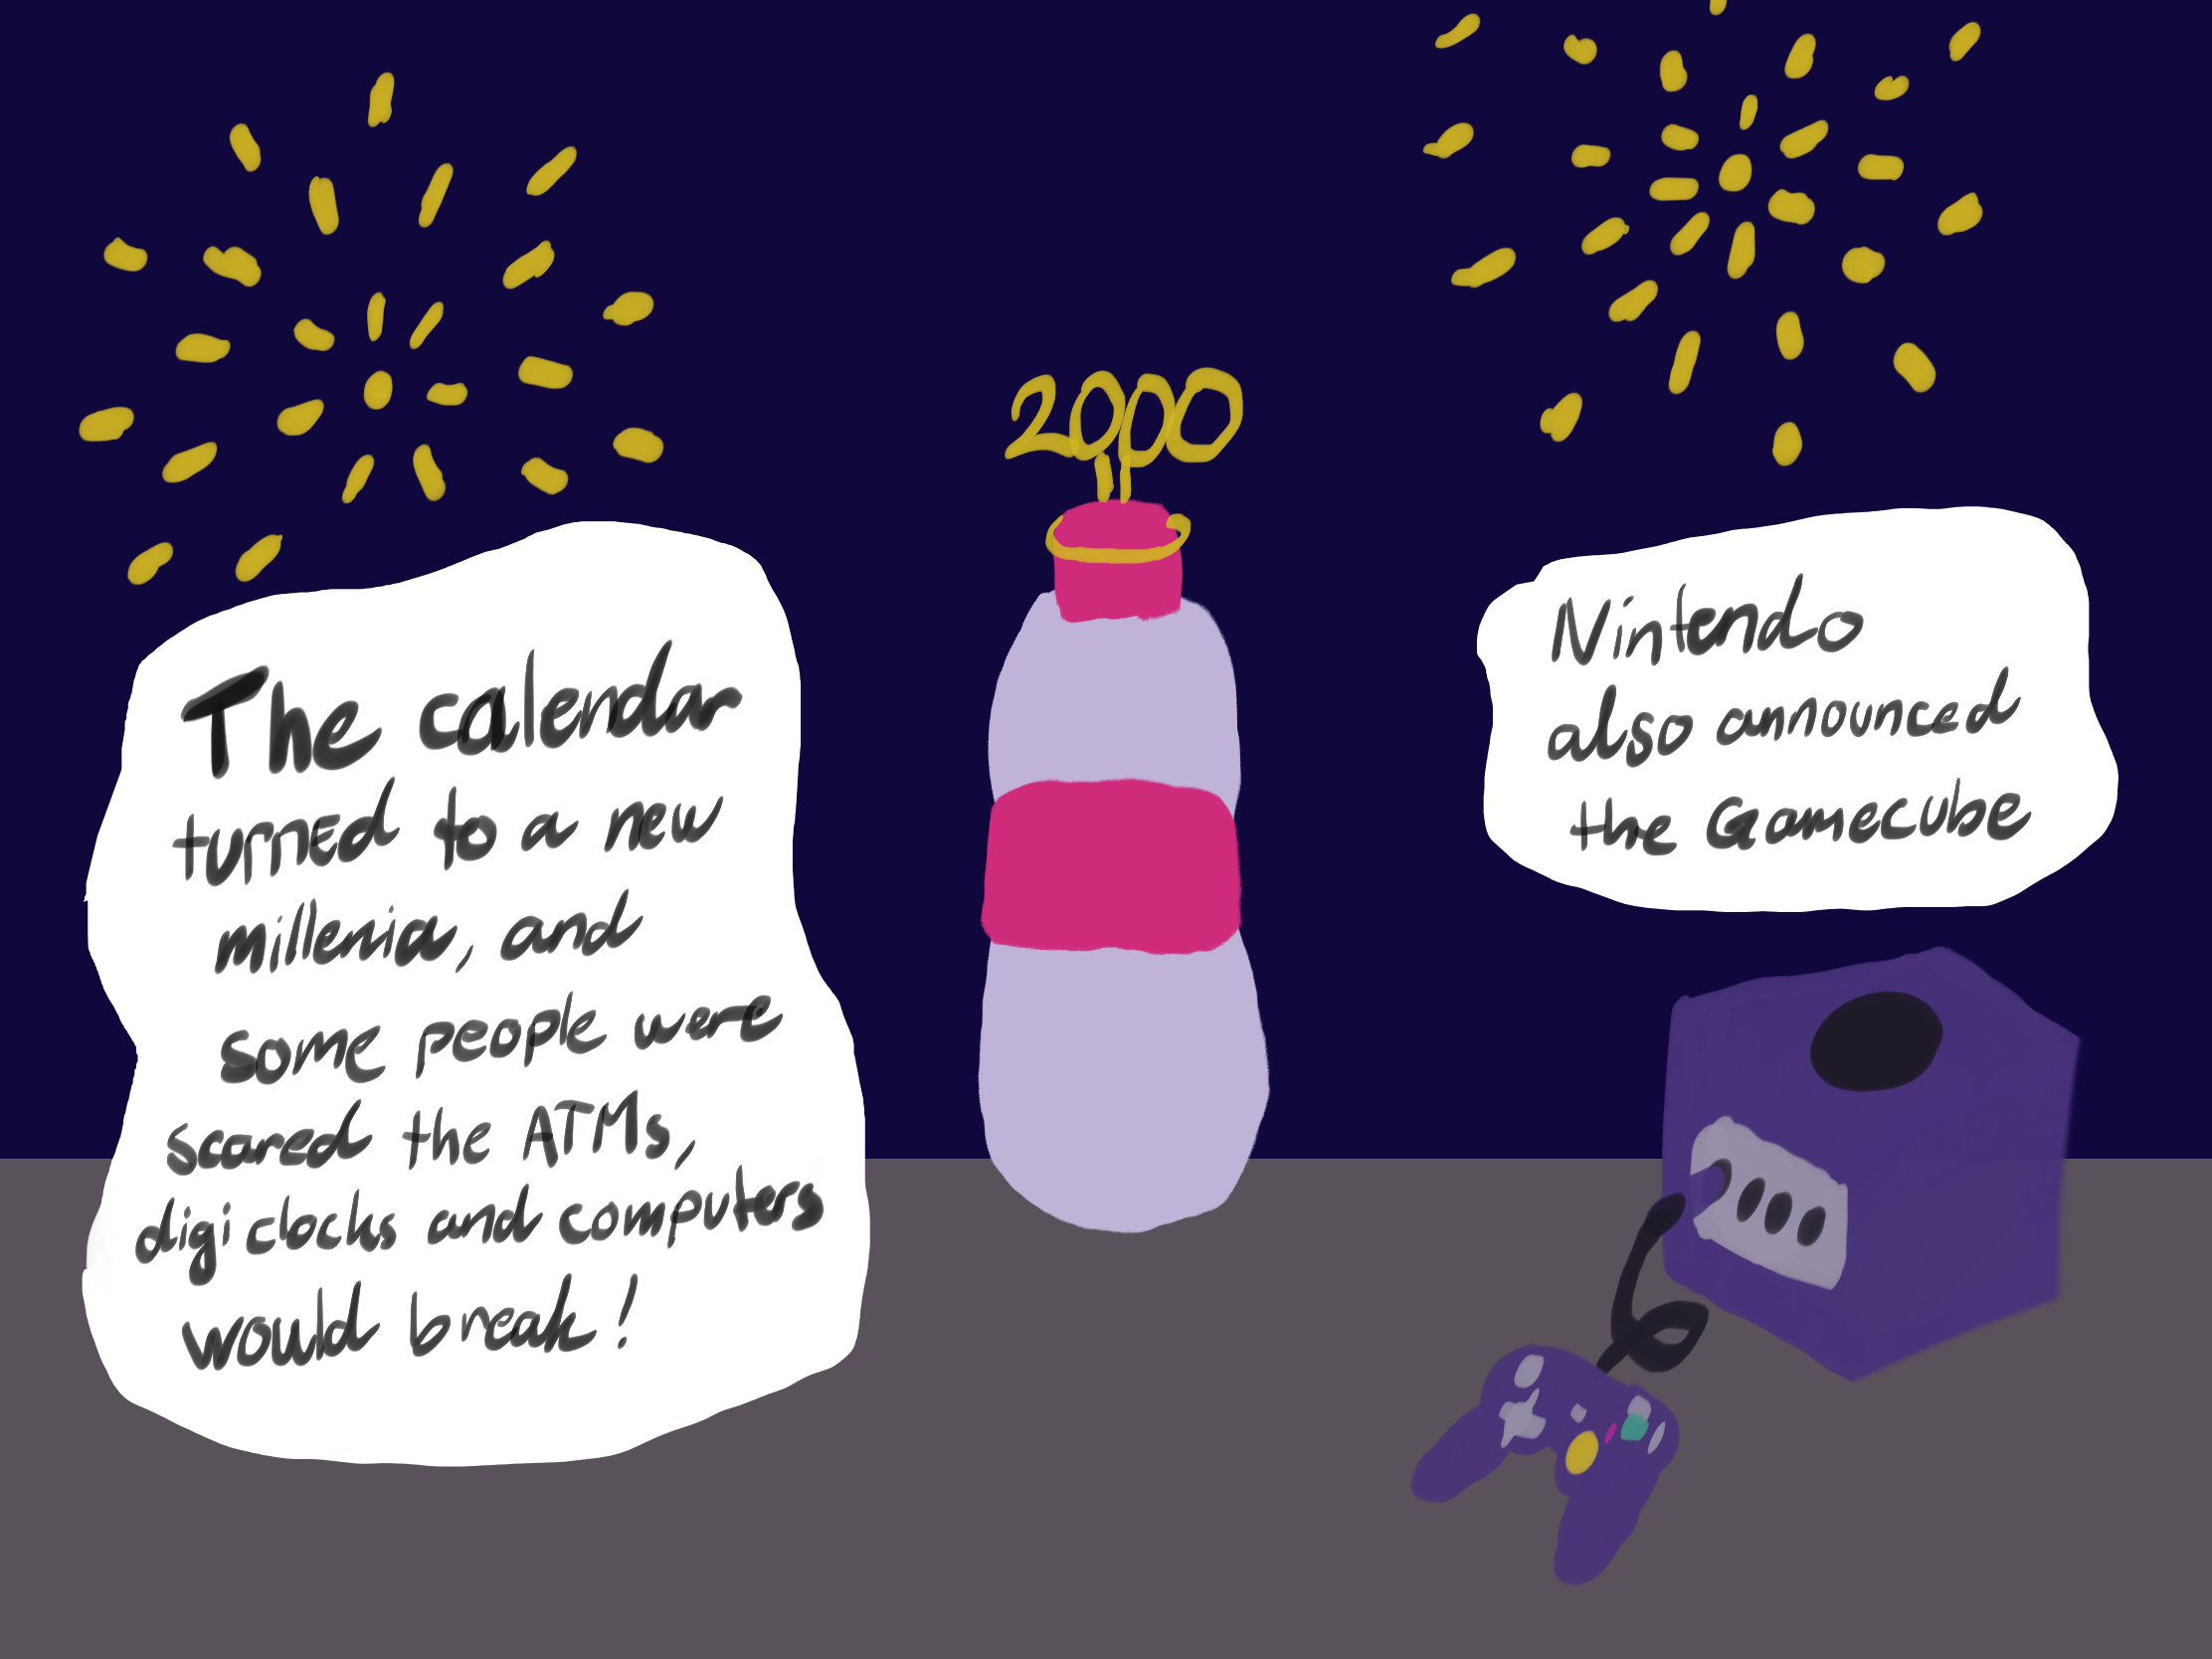 2000
The calendar
turned to a new
millenia, and
some people were
scared the ATMs,
digi clocks and computers
would break!
Nintendo
also announced
the Gamecube